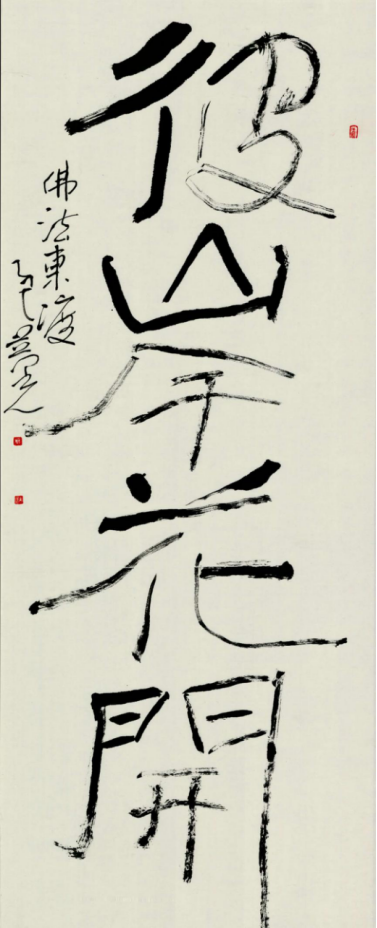 彼岸花開
佛法東渡